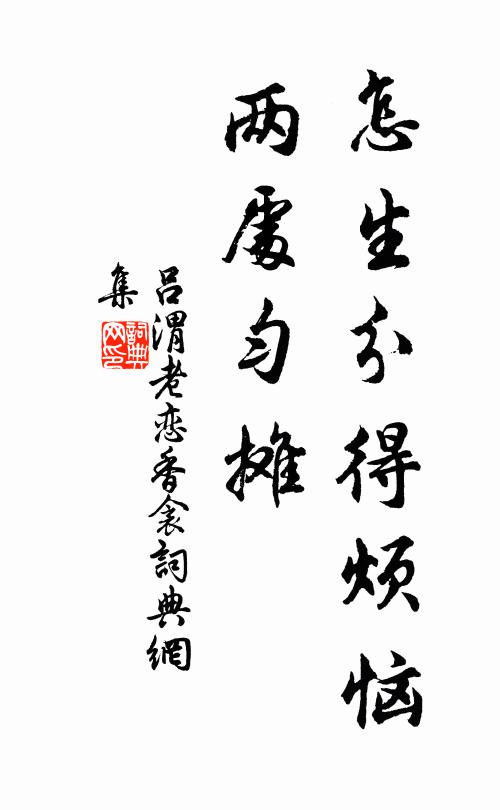 怎生分得烦恼
两處匀摊
吕渭老恋香衾詞典網
集
詞典网印